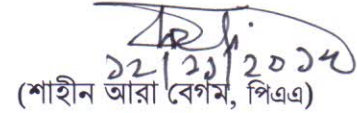 ১২/১১/২০১৮
(শাহীন আরা বেগম, পিএএ)